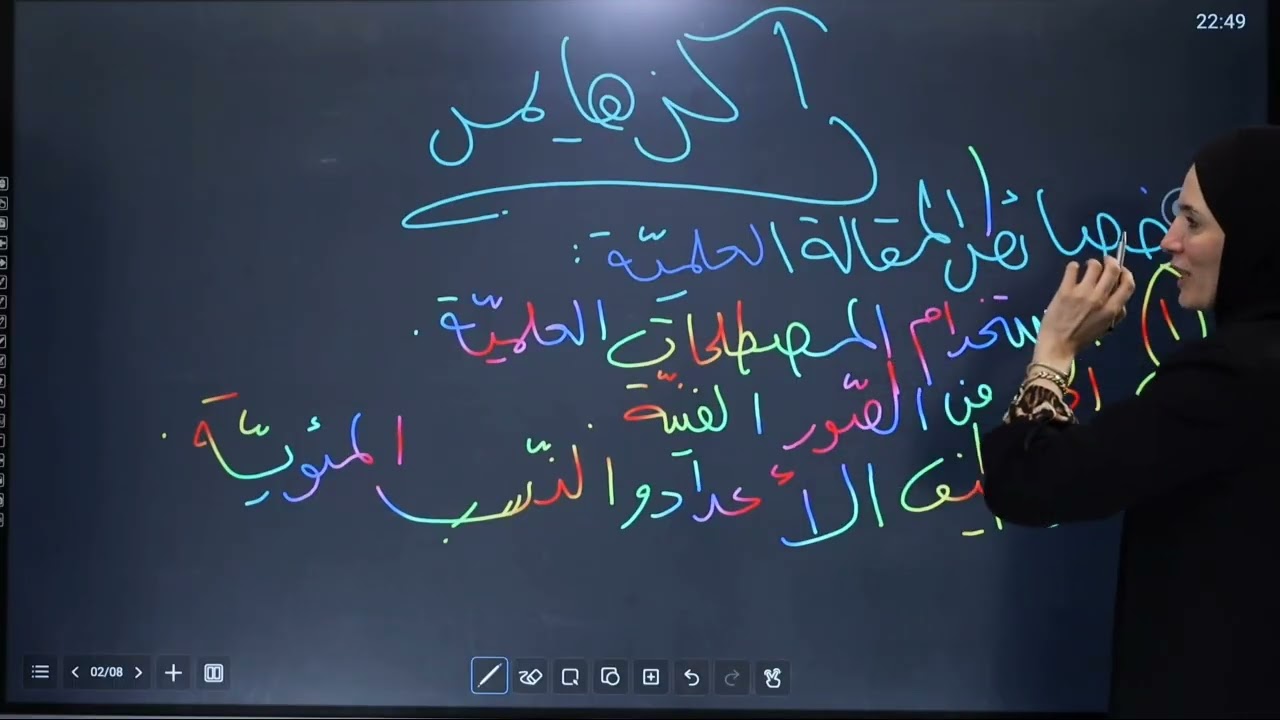 22:49
ألزهايمر
خصائص المقالة العلميّة :
المصطلحات العلميّة .
من الصّور الفنيّة .
الأعداد والنّسب المئويّة .
02/08